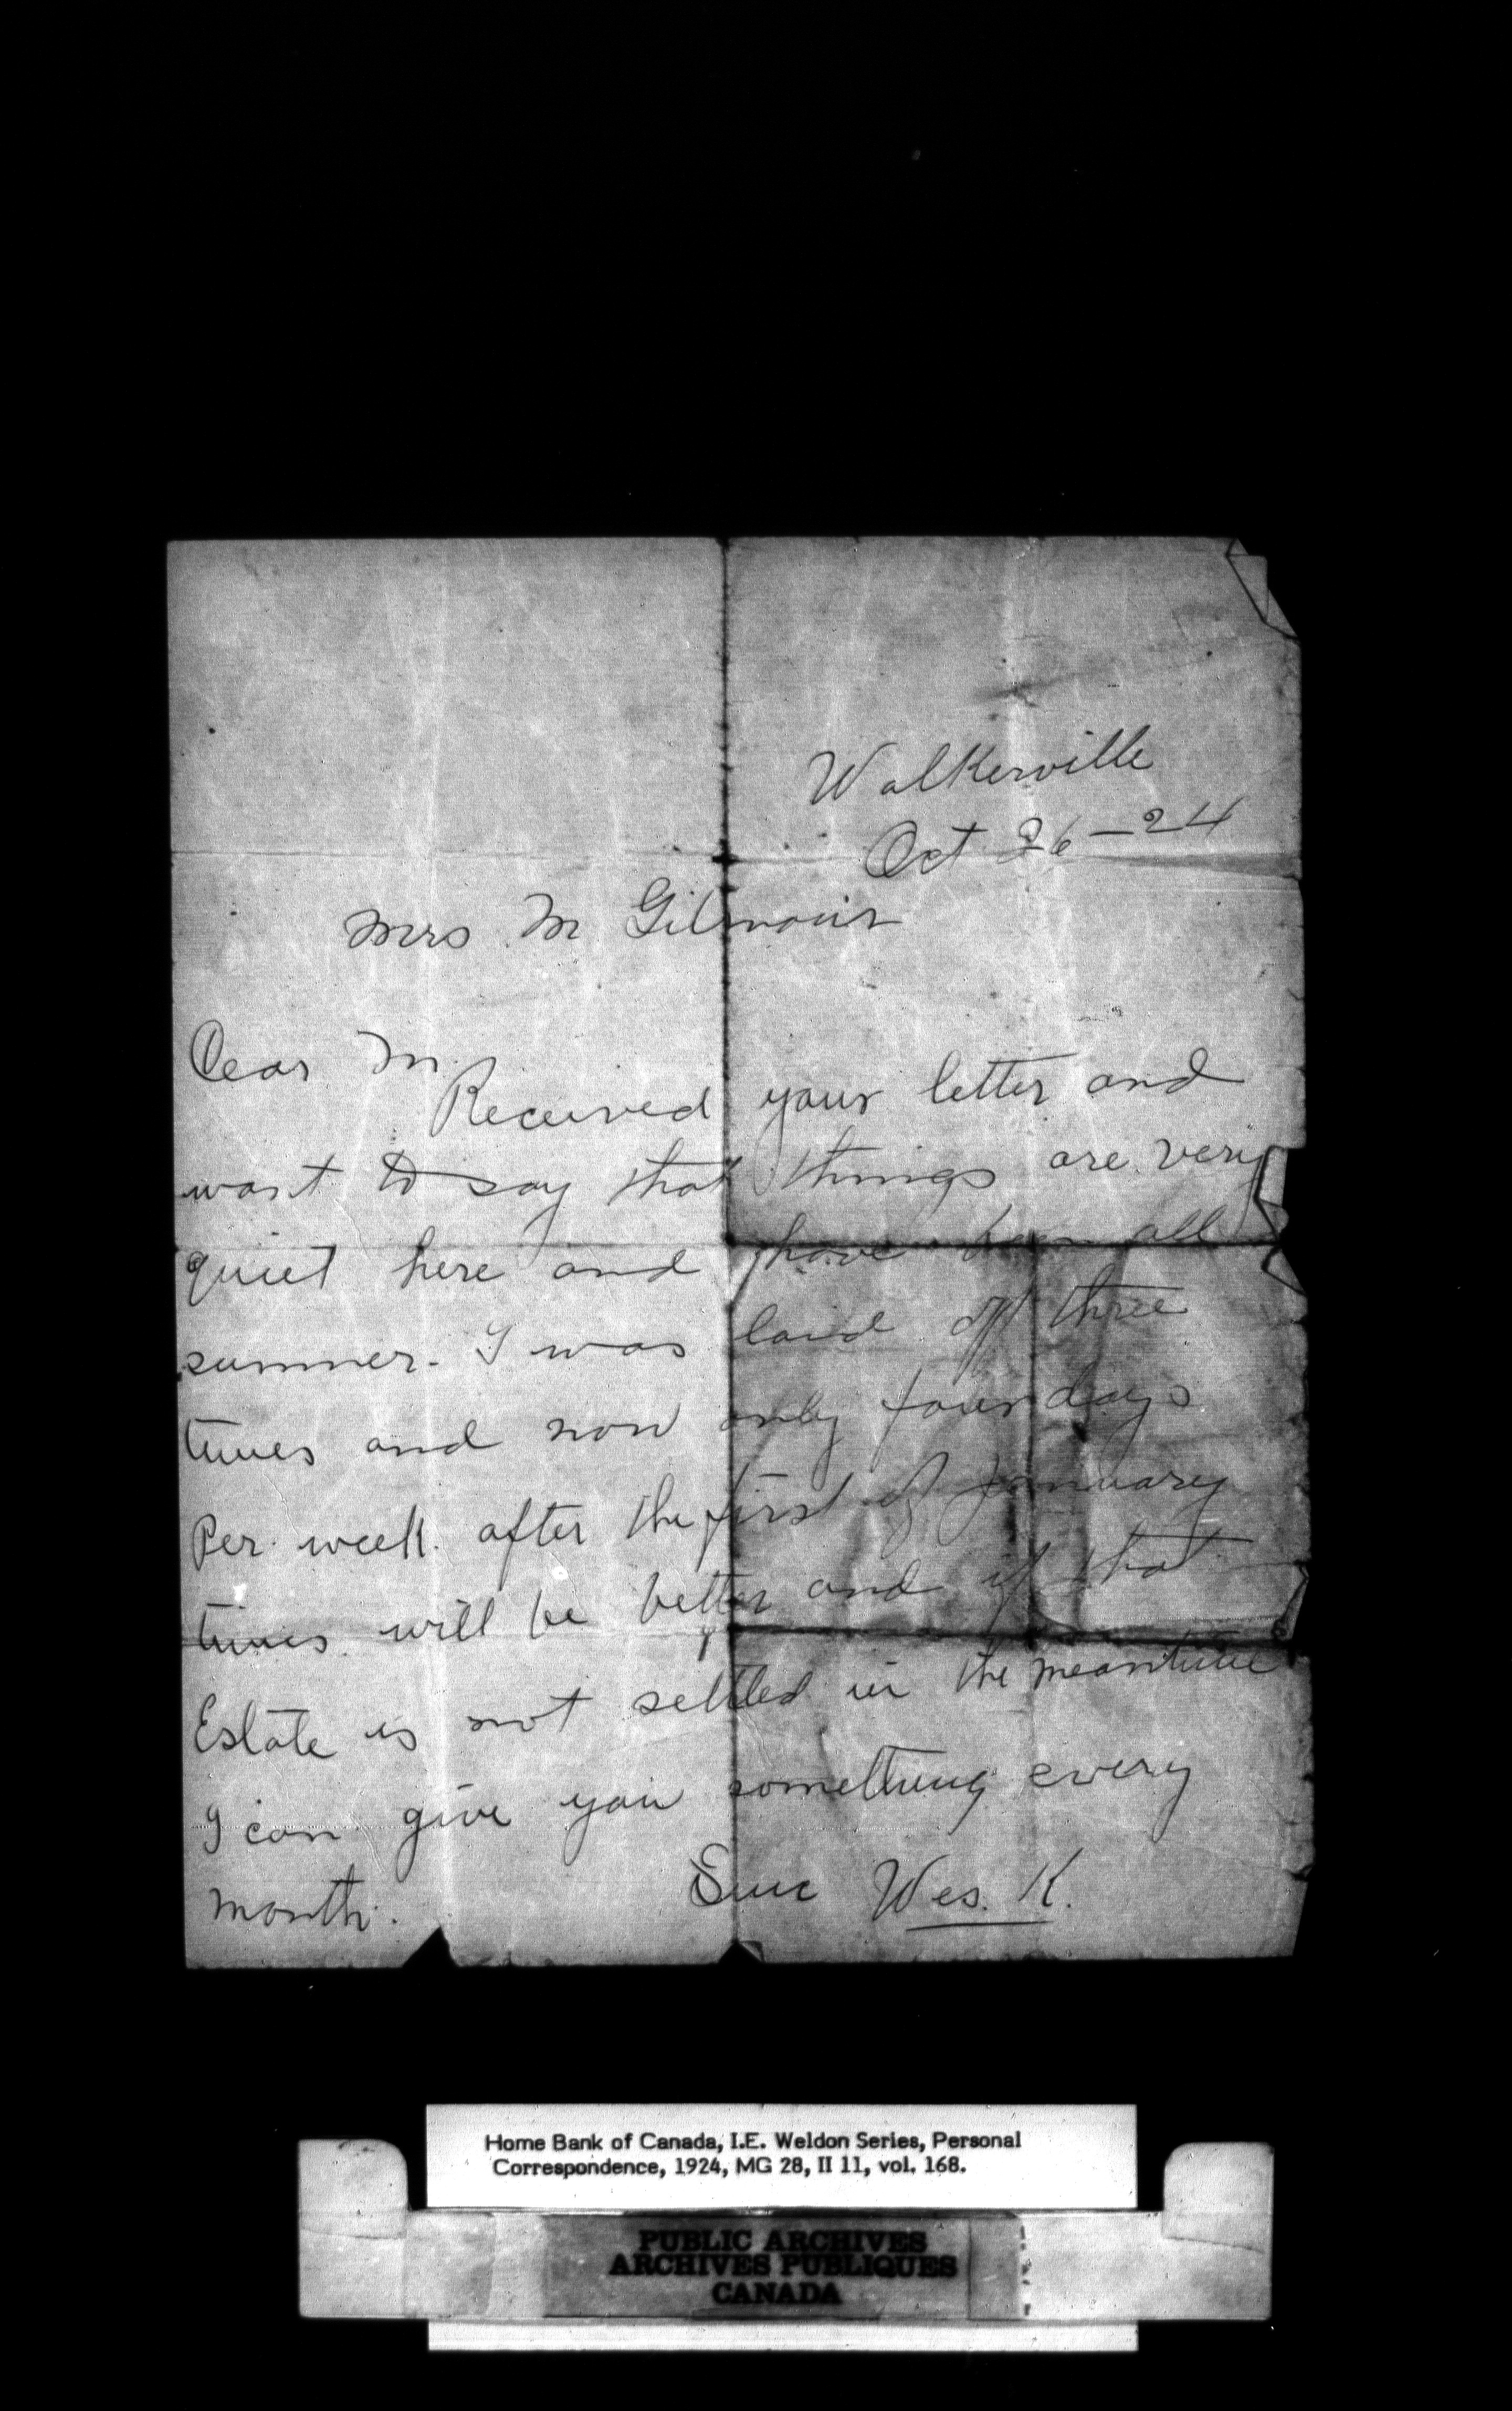 Walkerville
Oct 26-24
Mrs M Gilmour
Dear M.
Received your letter and
want to say that things are very
quiet here and have been all
summer. I was laid off three
times and now only four days
Per week. after the first of January
times will be better and if that
Estate is not settled in the meantime
I can give you something every
month.
Sinc Wes. K.
Home Bank of Canada, I.E. Weldon Series, Personal
Correspondence, 1924, MG 28, II 11, vol. 168.
PUBLIC ARCHIVES
ARCHIVES PUBLIQUES
CANADA